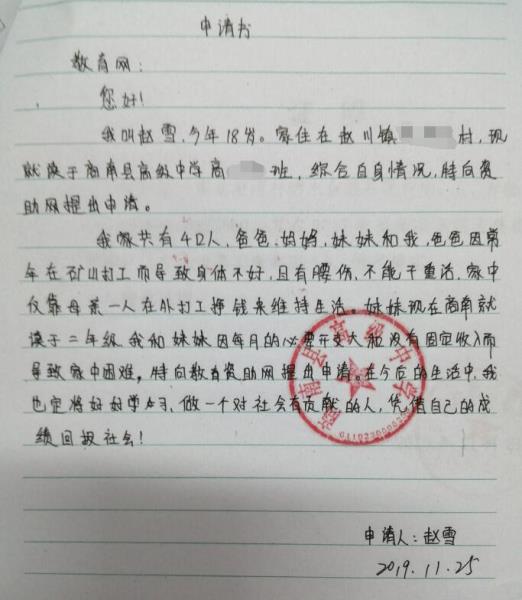 申请书
教育网：
您好！
我叫赵雪，今年18岁。家住在赵川镇村，现
就读于商南县高级中学高班，综合自身情况，特向资
助网提出申请。
我家共有4口人，爸爸，妈妈，妹妹和我，爸爸因常
年在矿山打工而导致身体不好，且有腰伤，不能干重活，家中
仅靠母亲一人在外打工挣钱来维持生活。妹妹现在商南就
读于二年级，我和妹妹因每月的必要开支大和没有固定收入而
导致家中困难，特向教育资助网提出申请，在今后的生活中，我
也定将好好学习，做一个对社会有贡献的人，凭借自己的成
绩回报社会！
商南县高级中学
申请人：赵雪
2019.11.25